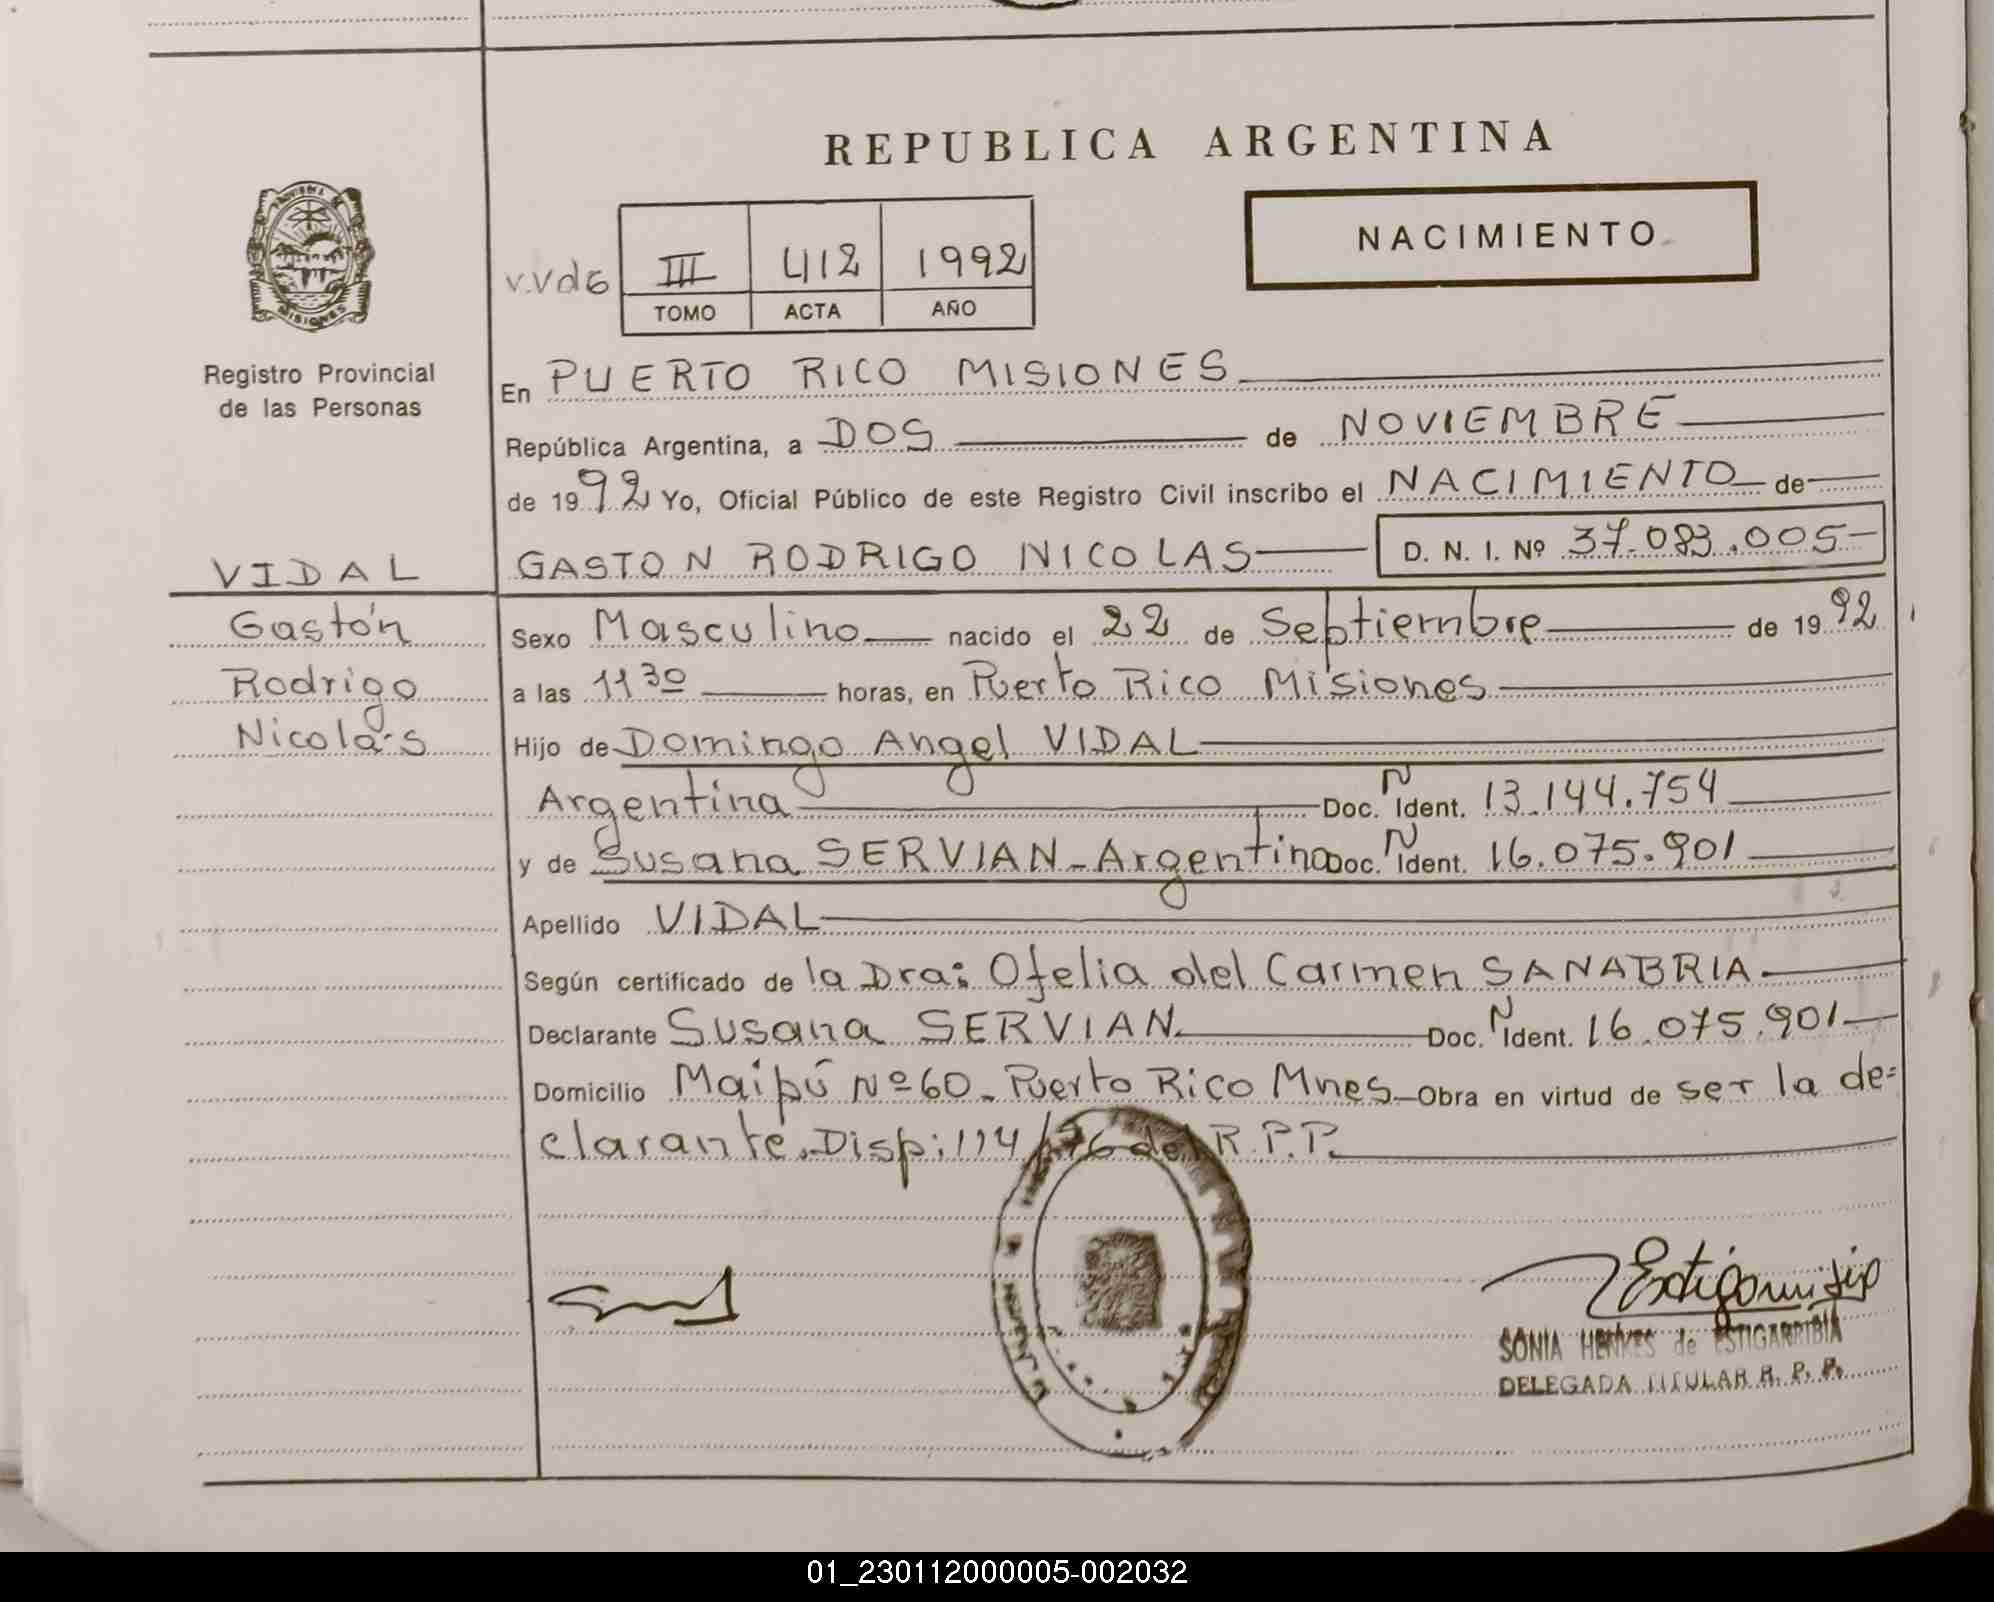 REPUBLICA ARGENTINA
NACIMIENTO
v.vdG III 412 1992
TOMO ACTA AÑO
Registro Provincial
de las Personas
En PUERTO RICO MISIONES
República Argentina, a DOS de NOVIEMBRE
de 1992 Yo, Oficial Público de este Registro Civil inscribo el NACIMIENTO de
VIDAL GASTON RODRIGO NICOLAS D. N. I. Nº 37.083.005-
Gastón Sexo Masculino nacido el 22 de Septiembre de 1992
Rodrigo a las 11 30 horas, en Puerto Rico Misiones
Nicolás Hijo de Domingo Angel VIDAL
Argentina Doc. N Ident. 13.144.754
y de Susana SERVIAN-Argentina Doc. N Ident. 16.075.901
Apellido VIDAL
Según certificado de la Dra: Ofelia del Carmen SANABRIA
Declarante Susana SERVIAN Doc. N Ident. 16.075.901
Domicilio Maipú Nº 60. Puerto Rico Mnes Obra en virtud de ser la de=
clarante. Disp: 114/76 del R.P.P.
SONIA HENKES de ESTIGARRIBIA
DELEGADA TITULAR R. P. P.
01_230112000005-002032